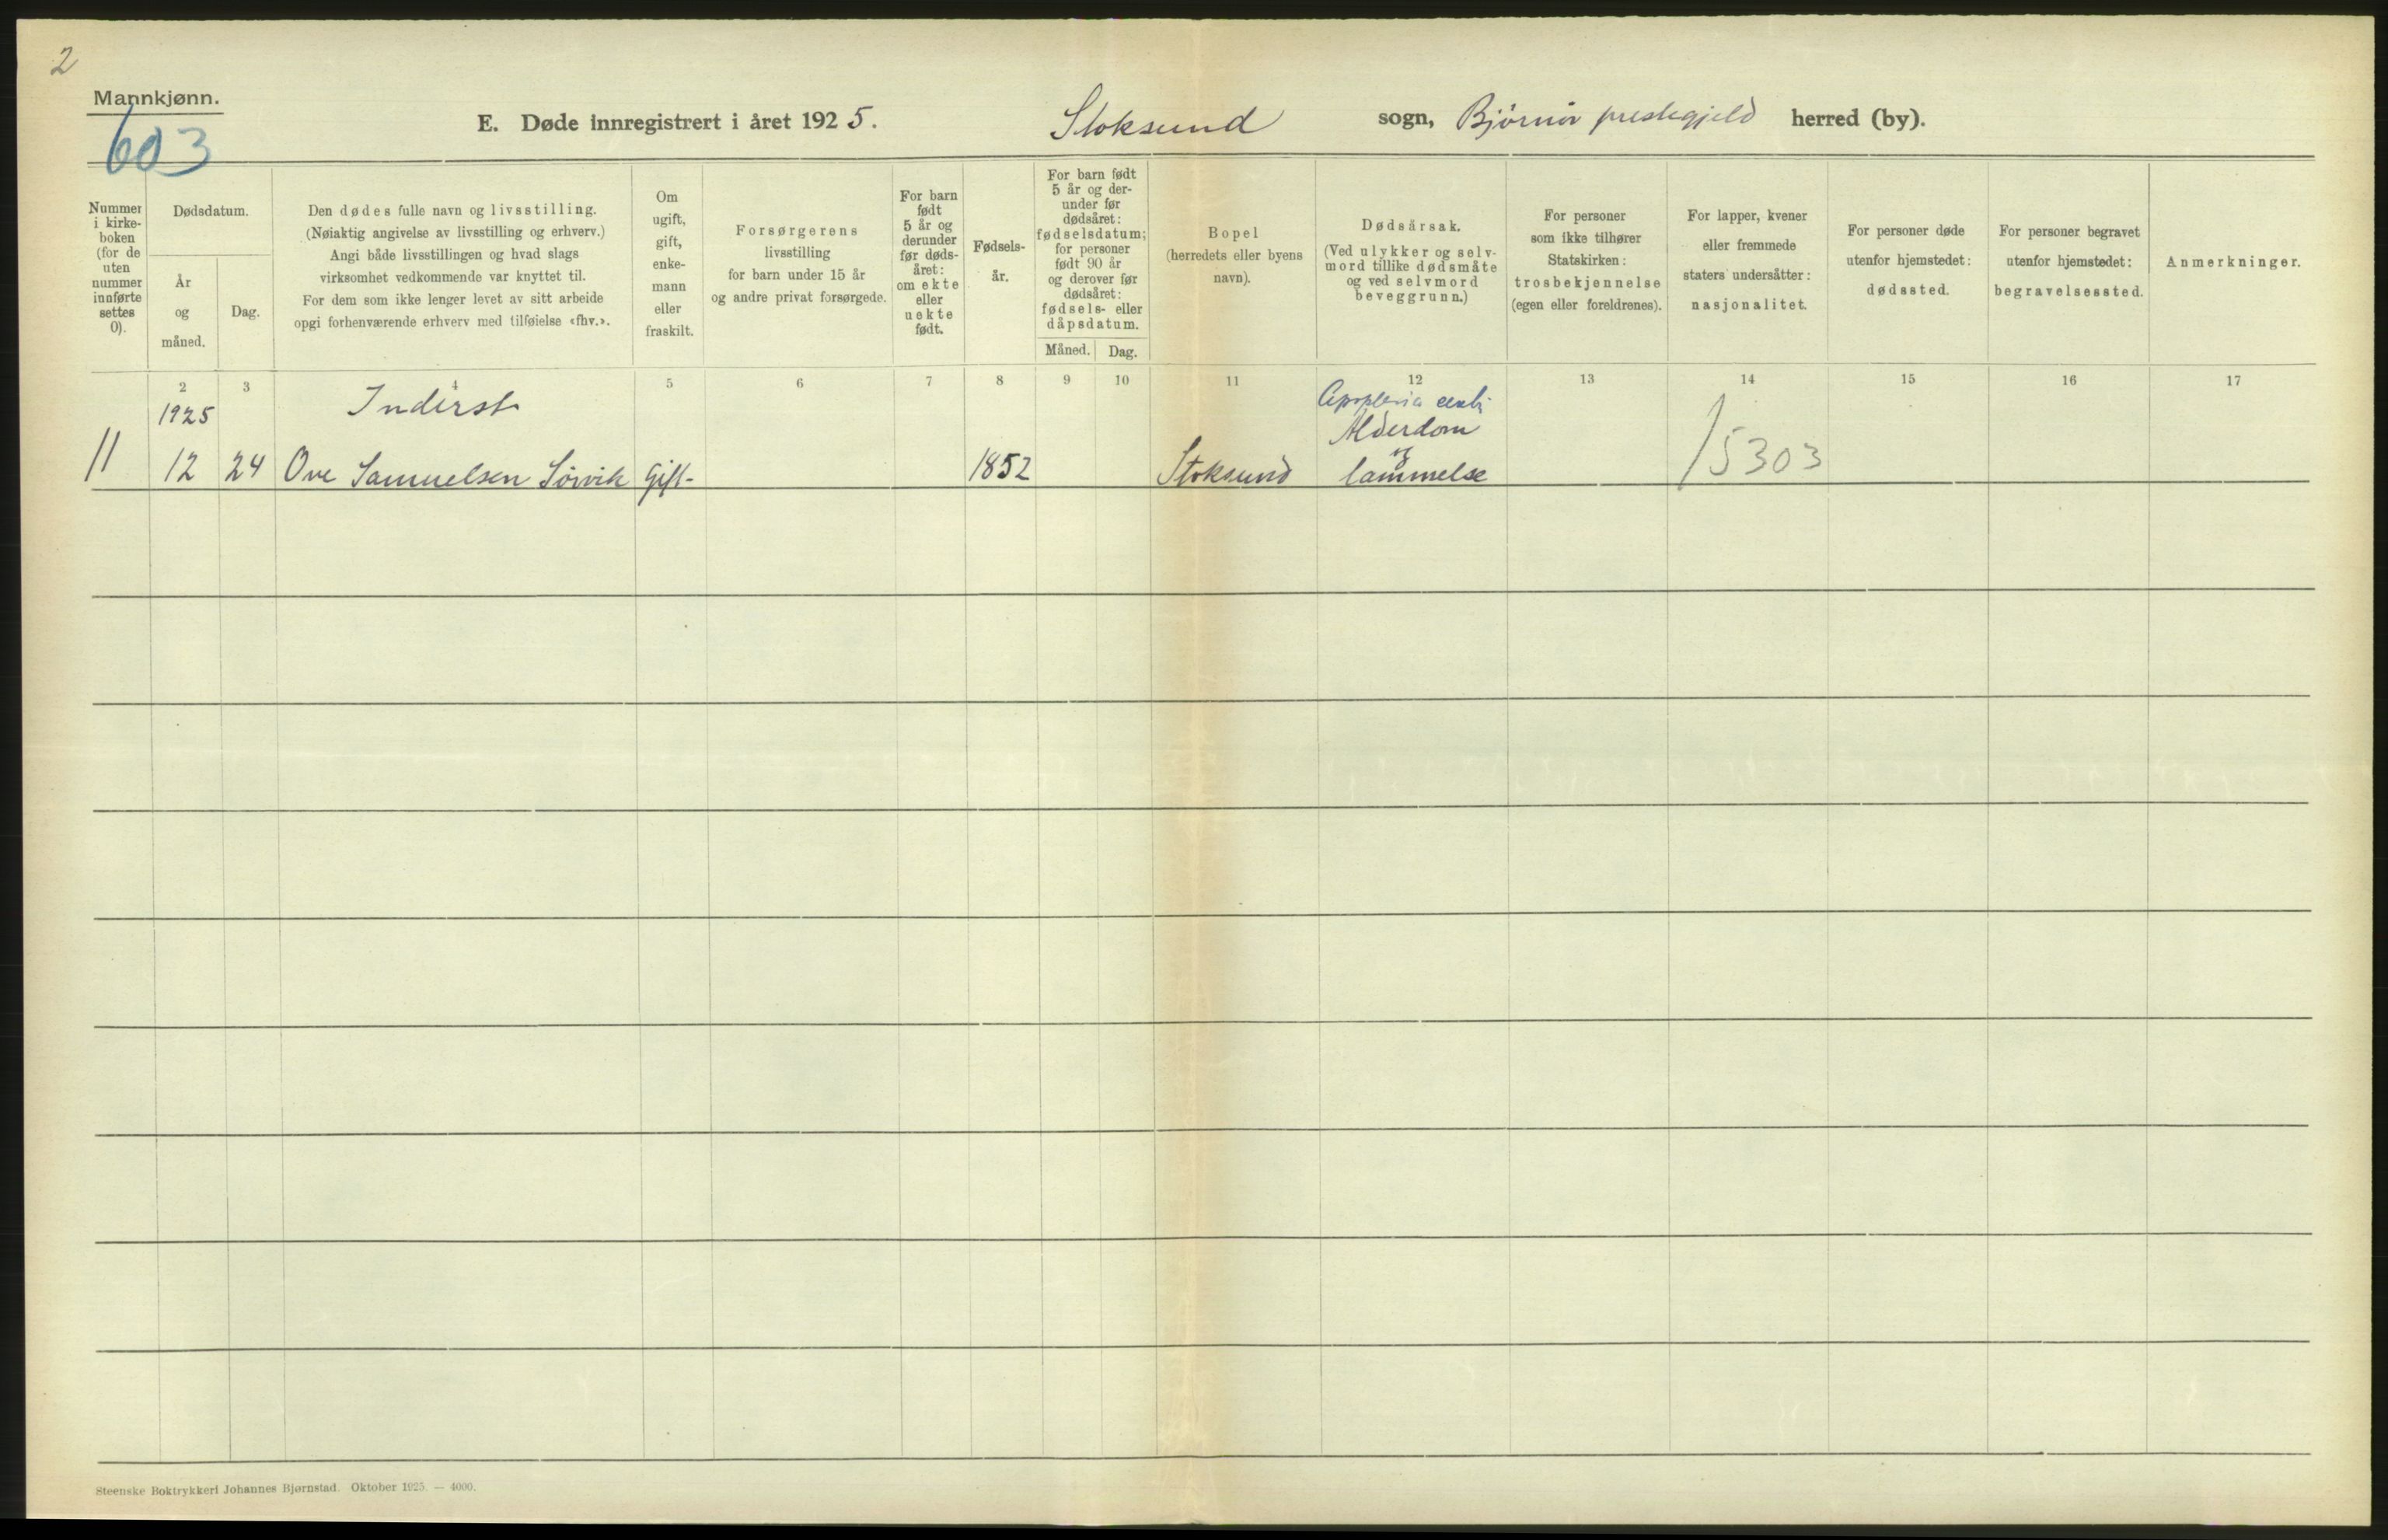 2
Mannkjønn.
603
E. Døde innregistrert i året 1925.
Stoksund sogn, Bjørnør prestegjeld herred (by).
Nummer
i kirke-
boken
(for de
uten
nummer
innførte
settes
0).
Dødsdatum.
År
og
måned.
Dag.
Den dødes fulle navn og livsstilling.
(Nøiaktig angivelse av livsstilling og erhverv.)
Angi både livsstillingen og hvad slags
virksomhet vedkommende var knyttet til.
For dem som ikke lenger levet av sitt arbeide
opgi forhenværende erhverv med tilføielse «fhv.».
Om
ugift,
gift,
enke-
mann
eller
fraskilt.
Forsørgerens
livsstilling
for barn under 15 år
og andre privat forsørgede.
For barn
født
5 år og
derunder
før døds-
året:
om ekte
eller
uekte
født.
Fødsels-
år.
For barn født
5 år og der-
under før
dødsåret:
fødselsdatum;
for personer
født 90 år
og derover før
dødsåret:
fødsels- eller
dåpsdatum.
Måned.
Dag.
Bopel
(herredets eller byens
navn).
Dødsårsak.
(Ved ulykker og selv-
mord tillike dødsmåte
og ved selvmord
beveggrunn.)
For personer
som ikke tilhører
Statskirken:
trosbekjennelse
(egen eller foreldrenes).
For lapper, kvener
eller fremmede
staters undersåtter:
nasjonalitet.
For personer døde
utenfor hjemstedet:
dødssted.
For personer begravet
utenfor hjemstedet:
begravelsessted.
Anmerkninger.
2 3 4 5 6 7 8 9 10 11 12 13 14 15 16 17
1925 Inderst Apoplexia
Alderdom
og
11 12 24 Ove Samuelsen Sørvik Gift- 1852 Stoksund lammelse 15303
Steenske Boktrykkeri Johannes Bjørnstad. Oktober 1925. — 4000.